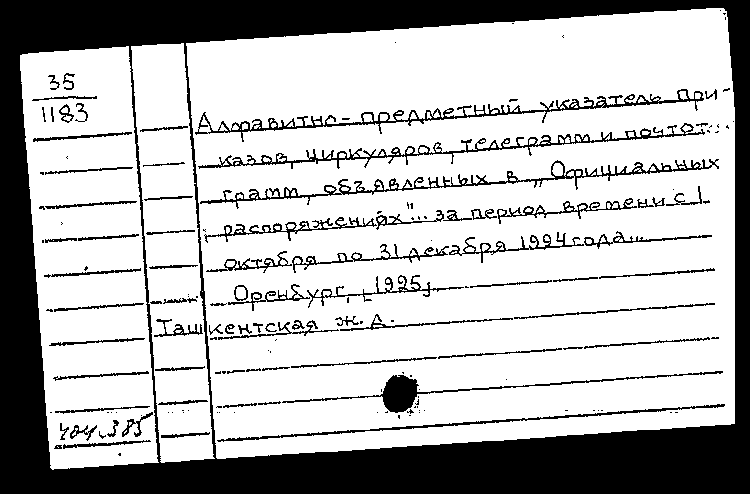 35
1183
Алфавитно-предметный указатель при-
казов, циркуляров, телеграмм и почтот...
грамм, объявленных в „Официальных
распоряжениях"... за период времени с 1
октября по 31 декабря 1924 года...
Оренбург, [1925]
Ташкентская ж.д.
404.385